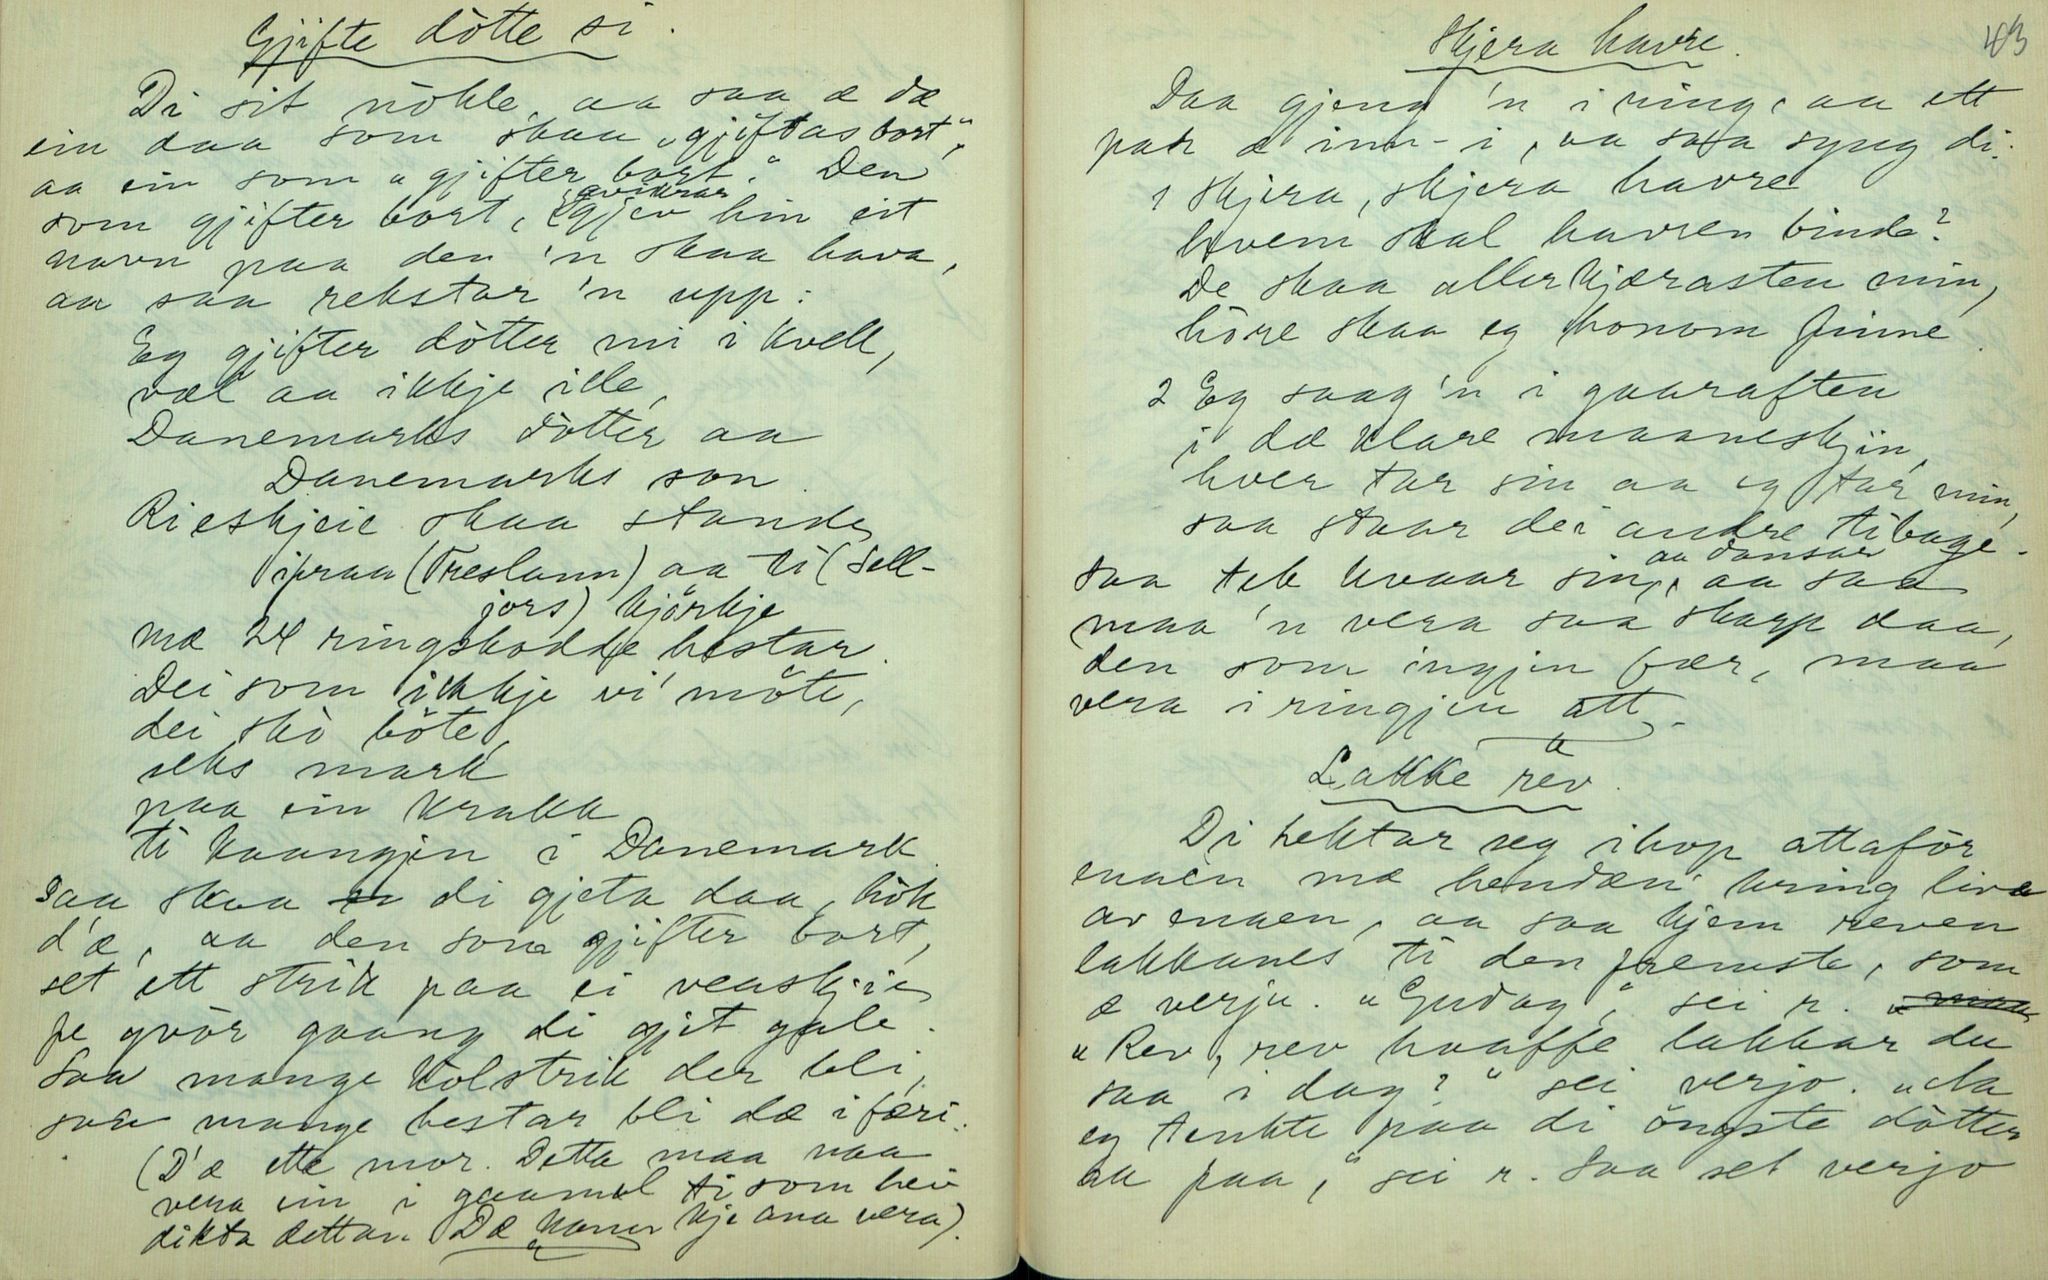 Gjifte dòtte si.
Di sit nokle, aa saa æ dæ
ein daa som skaa „gjiftas bort",
aa ein som „gjifter bort." Den
som gjifter bort, gjev kvikrar hin eit
navn paa den 'n skaa hava,
aa saa rekstar 'n upp:
Eg gjifter dòtter mi i kvell,
væl aa ikkje ille,
Danemarks dòtter aa
Danemarks son.
Rieskjeie skaa stande
ifraa (Treslann) aa ti (Sell-
jors) kjörkje
mæ 24 ringskodde hestar.
Dei som ikkje vi' möte,
dei skò böte,
seks mark
paa ein krakk
ti kaangjen i Danemark.
Saa skaa di gjeta daa, hòk
d'æ, aa den som gjifter bort,
set ett strik paa ei veaskjie
fe gvòr gaang di gjet gale.
Saa mange kolstrik der bli,
saa mange hestar bli dæ i færi.
(D'æ ette mor. Detta maa naa
vera ein i gaamal ti som hev
dikta dettan. Dæ kann kje ana vera).
43
Skjera havre.
Daa gjeng 'n i ring, aa ett
par æ inn-i, aa saa syng di:
1 Skjera, skjera havre
hvem skal havren binde?
De skaa allerkjærasten min,
hòre skaa eg honom finne.
2 Eg saag 'n i gaaraften
i dæ klare maaneskjin,
hver tar sin aa eg tar min,
saa staar dei andre tibage.
Saa tek kvaar sin, aa dansar, aa saa
maa 'n vera saa skarp daa,
den som ingjen fær, maa
vera i ringjen att.
Lakke rev.
Di hektar seg ihop attafòr
enaen mæ hendæn' kring live
av enaen, aa saa kjem reven
lakkanes ti den fremste, som
æ verju. „Gudag", sei n.
„Rev, rev kvaffe lakkar du
saa i dag?" sei verjo. „Aa
eg tenkte paa di öngste dòtter
aa paa," sei n. Saa set verjo